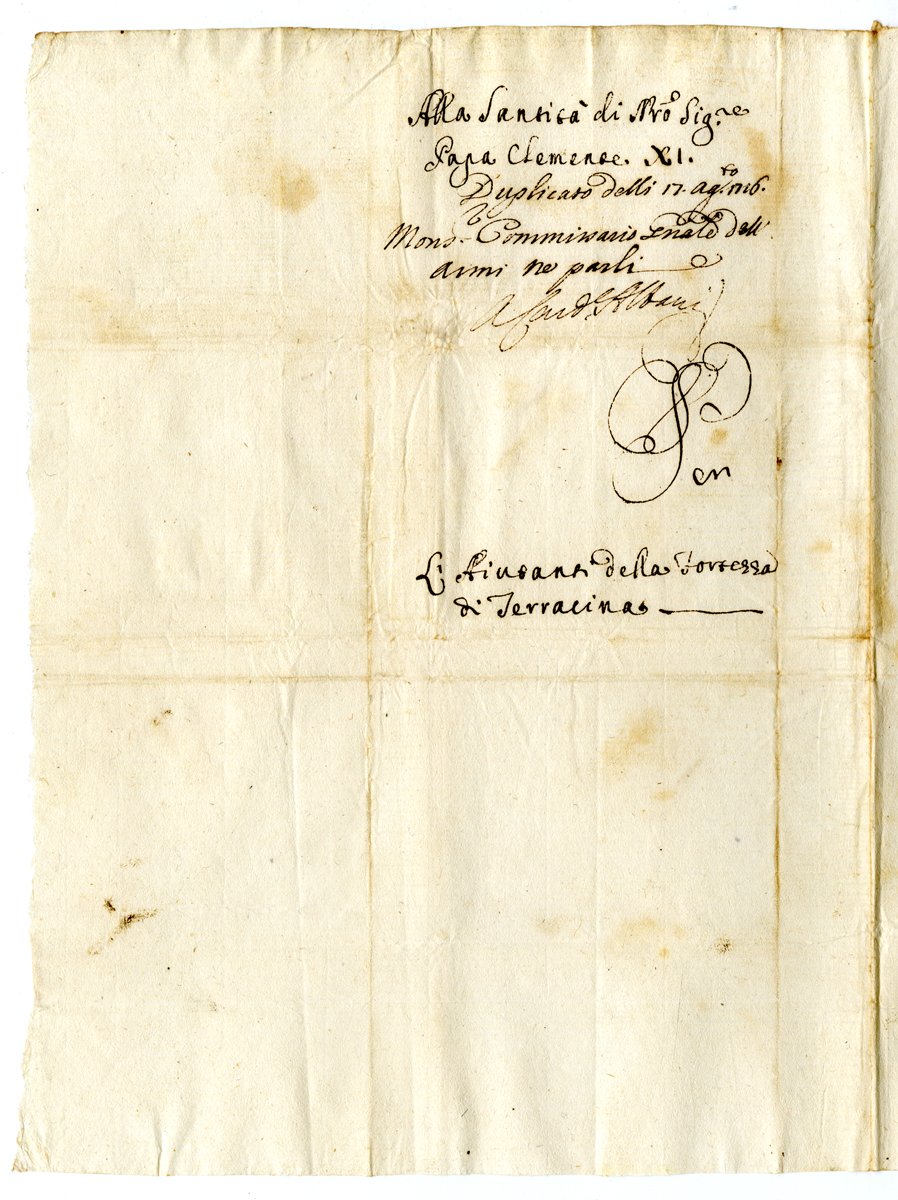 Alla Santità di Nrõ Sig.re
Papa Clemente. XI.
Duplicato delli 17. ag.to 1716.
Mons.r Commissario Gnãle dell'
armi ne parli
A Card. Albani
Per
Li Aiutanti della Fortezza
di Terracina